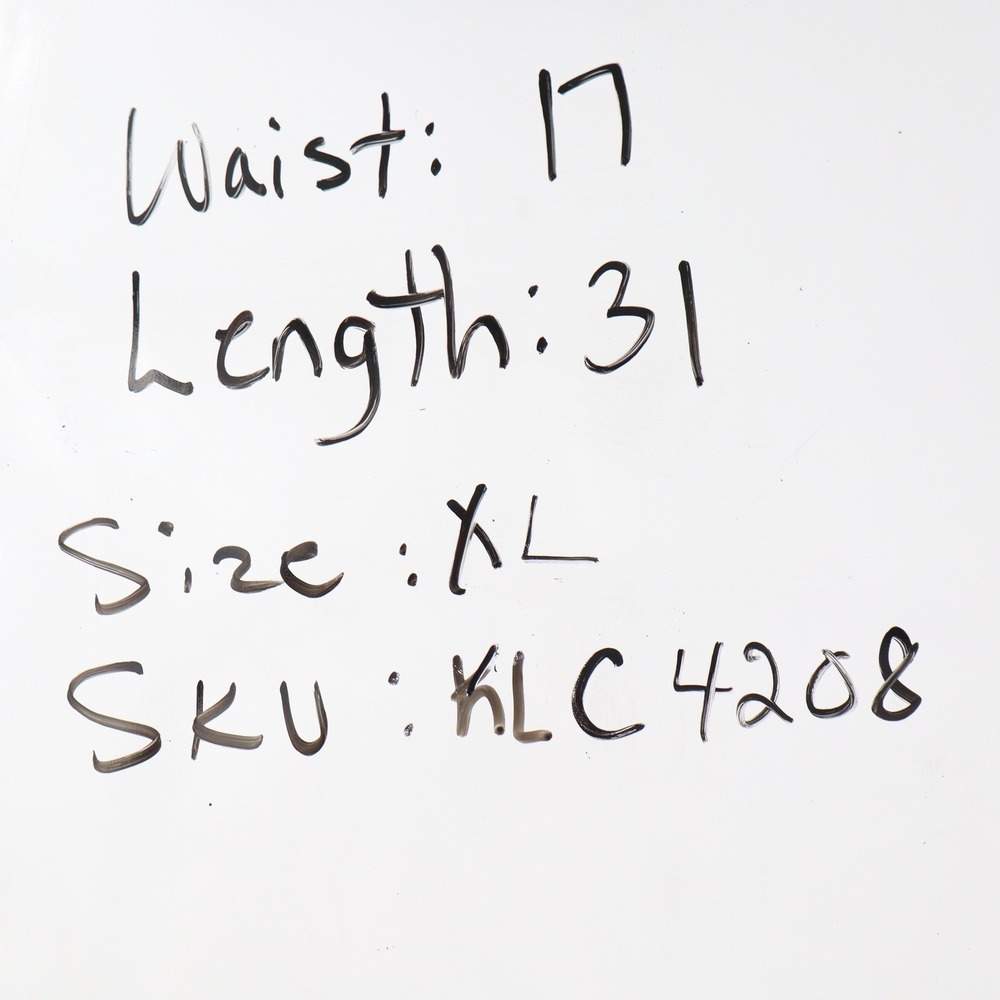 Waist: 17
Length: 31
Size: XL
SKU: KLC4208